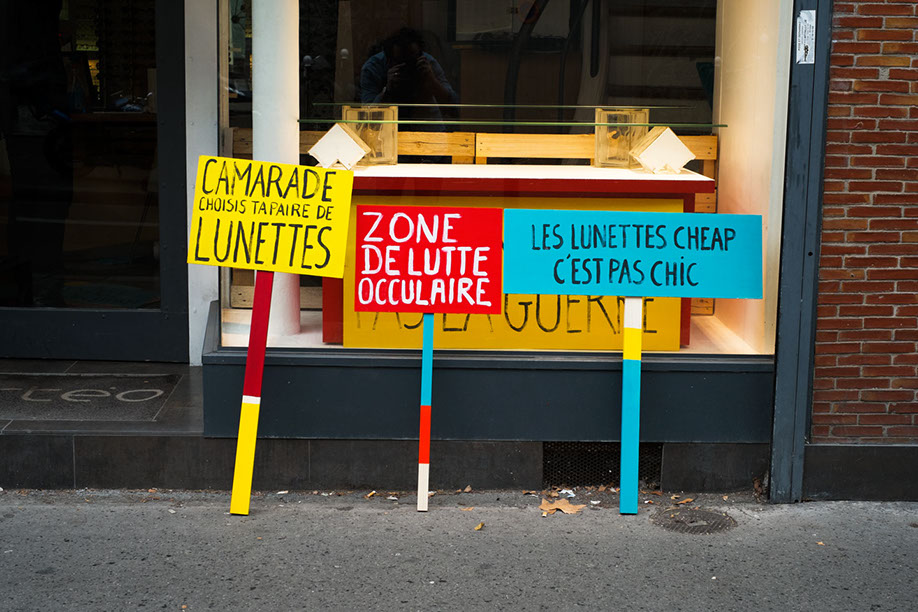 CAMARADE
CHOISIS TA PAIRE DE
LUNETTES
ZONE
DE LUTTE
OCCULAIRE
LES LUNETTES CHEAP
C'EST PAS CHIC
PAS LA GUERRE